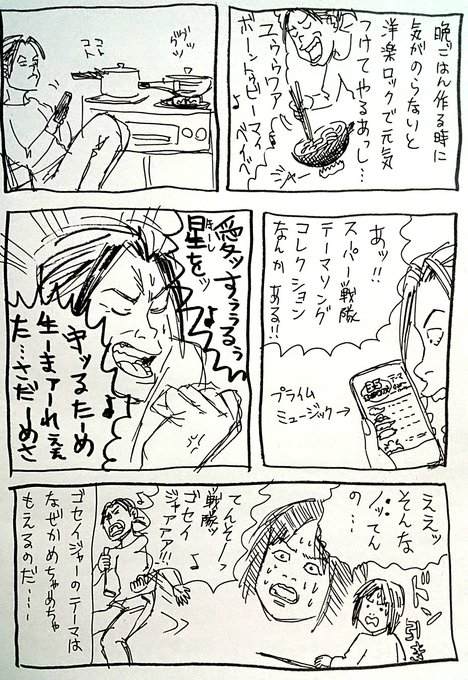 晩ごはん作る時に
気がのらないと
洋楽ロックで元気
つけてやるあっし…
ユゥウワァ
ボーントゥビーマィ
ベイベ
ジャー
グツ
グツ
コト
コト
あッ!!
スーパー戦隊
テーマソング
コレクション
なんかある!!
プライム
ミュージック→
愛ッすぅうるぅ
星をッ
ほーし
キッるたーめ
生ーまァーれぇえ
た…さだーめさ
ええッ
そんな
ノッてん
の…
ドン
引き
てんそーッ
戦隊ッ
ゴセイ
ジャアァァ!!
ゴセイジャーの
テーマは
なぜかめちゃめちゃ
もえるのだ……